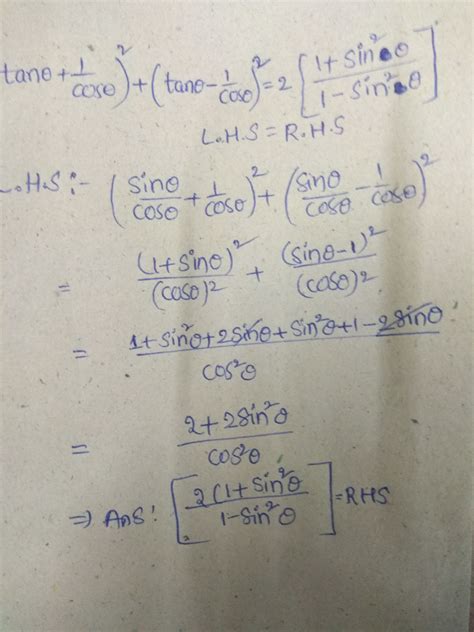 tanθ + 1/cosθ)² + (tanθ - 1/cosθ)² = 2 [1 + sin²θ / 1 - sin²θ]
L.H.S = R.H.S
L.H.S :- (sinθ/cosθ + 1/cosθ)² + (sinθ/cosθ - 1/cosθ)²
= (1 + sinθ)²/(cosθ)² + (sinθ - 1)²/(cosθ)²
= 1 + sin²θ + 2sinθ + sin²θ + 1 - 2sinθ / cos²θ
= 2 + 2sin²θ / cos²θ
⇒ Ans: [2(1 + sin²θ / 1 - sin²θ] = RHS